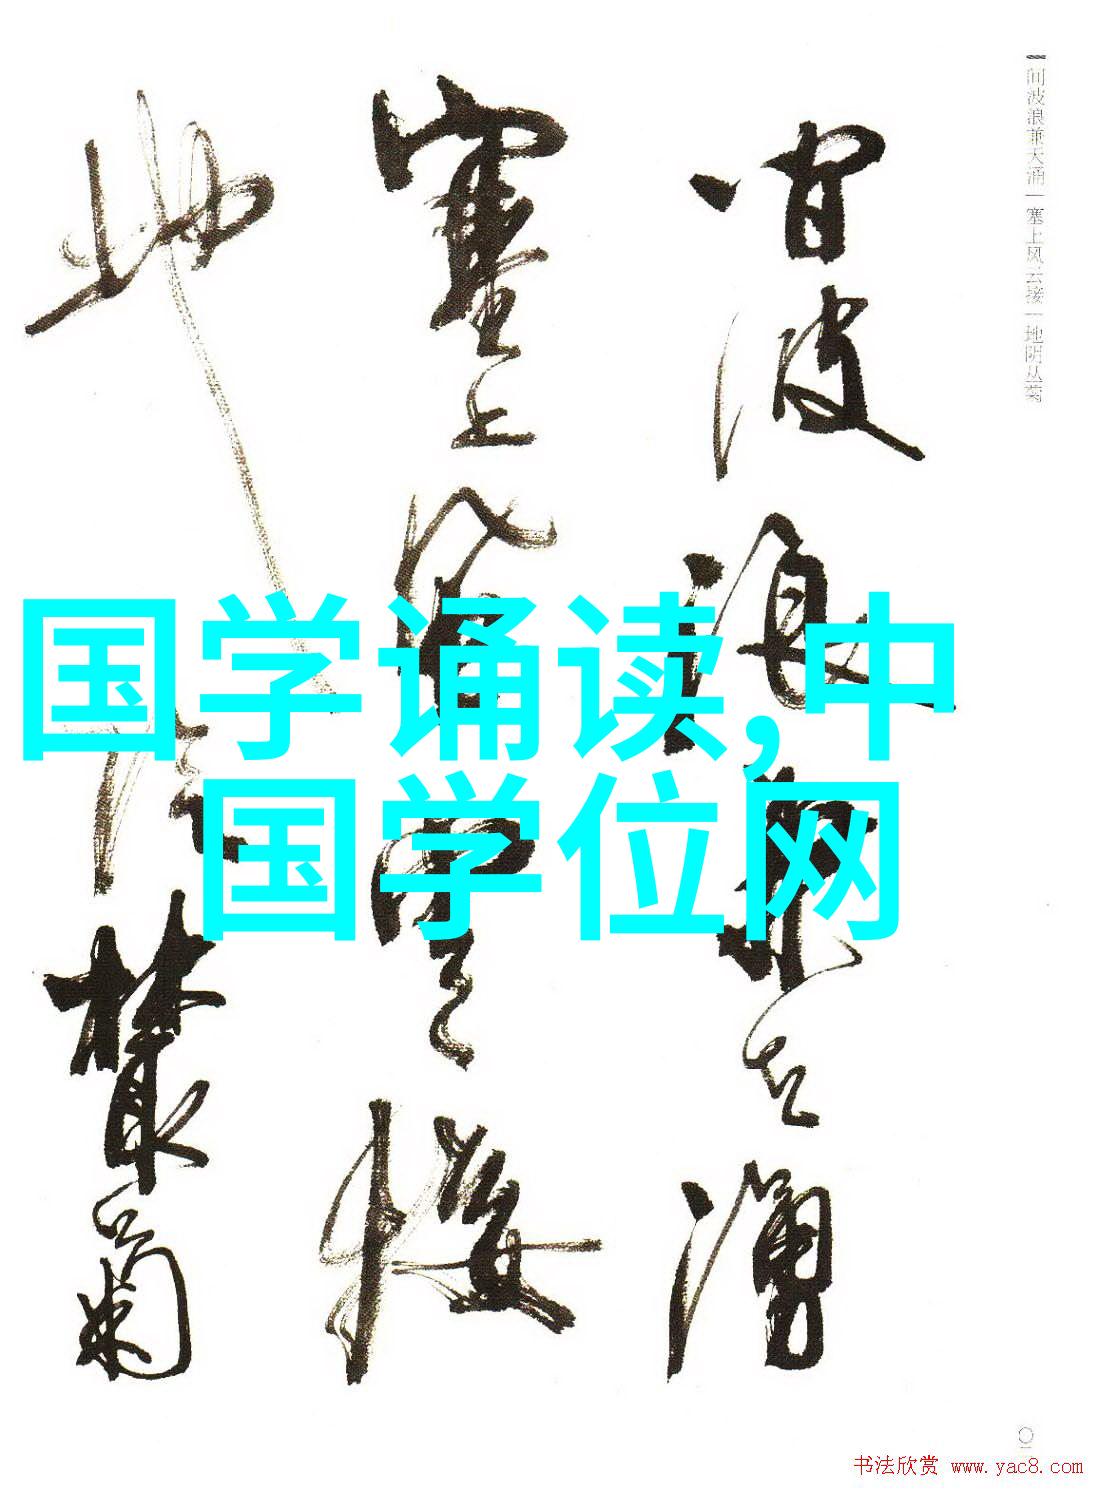 间波浪兼天涌
塞上风云接
地阴丛菊
间波浪兼天涌｜塞上风云接｜地阴丛菊
国学诵读,中
国学位网
书法欣赏 www.yac8.com